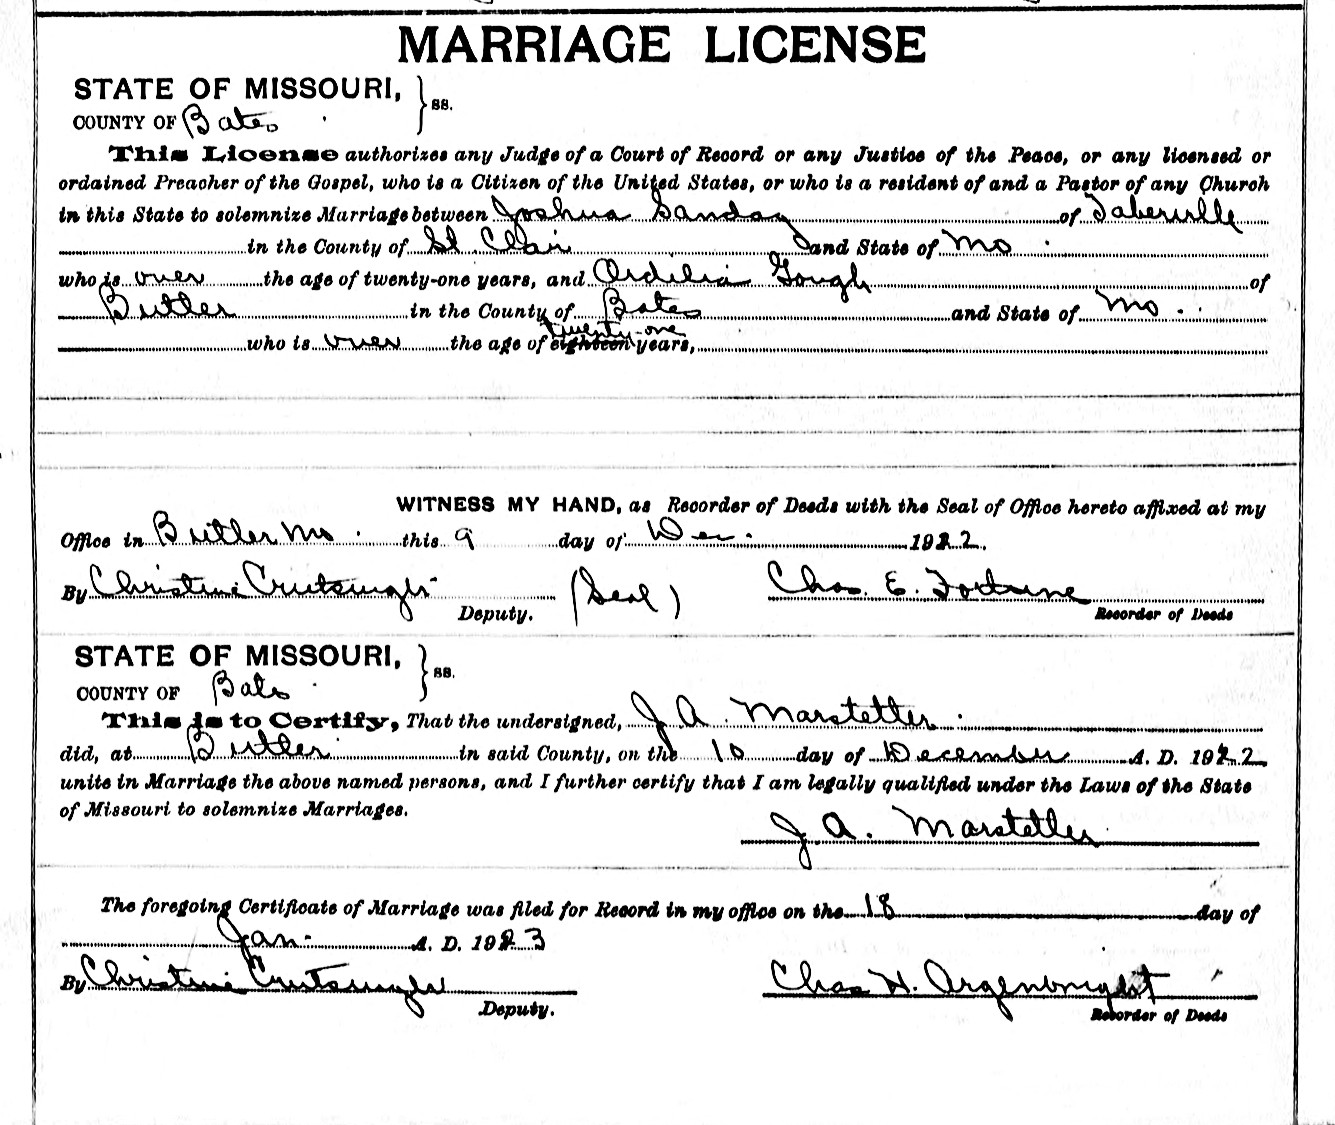 MARRIAGE LICENSE
STATE OF MISSOURI,
COUNTY OF Bates } ss.
This License authorizes any Judge of a Court of Record or any Justice of the Peace, or any licensed or
ordained Preacher of the Gospel, who is a Citizen of the United States, or who is a resident of and a Pastor of any Church
in this State to solemnize Marriage between Joshua Sanday of Taberville
in the County of St Clair and State of Mo.
who is over the age of twenty-one years, and Ordelia Gough of
Butler in the County of Bates and State of Mo.
twenty-one
who is over the age of eighteen years,
WITNESS MY HAND, as Recorder of Deeds with the Seal of Office hereto affixed at my
Office in Butler Mo. this 9 day of Dec. 1922.
By Christine (Seal) Chas. E. Fortune
Deputy. Recorder of Deeds
STATE OF MISSOURI,
COUNTY OF Bates } ss.
This is to Certify, That the undersigned, J A. Marstetter.
did, at Butler in said County, on the 10 day of December A. D. 1922
unite in Marriage the above named persons, and I further certify that I am legally qualified under the Laws of the State
of Missouri to solemnize Marriages.
J A. Marstetter
The foregoing Certificate of Marriage was filed for Record in my office on the 18 day of
Jan. A. D. 1923
By Christine Chas H. Argenbright
Deputy. Recorder of Deeds